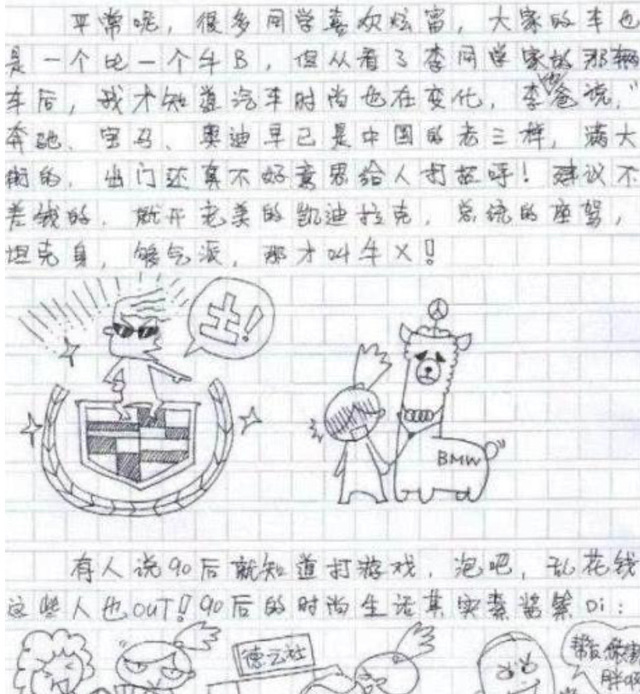 平常呢，很多同学喜欢炫富，大家的车也
是一个比一个牛B，但从看了李同学家的那辆
车后，我才知道汽车时尚也在变化，李爸也说，“
奔驰、宝马、奥迪早已是中国的老三样，满大
街的，出门还真不好意思给人打招呼！建议不
差钱的，就开老美的凯迪拉克，总统的座驾，
坦克身，够气派，那才叫牛X！
土！
BMW
有人说90后就知道打游戏，泡吧，乱花钱
这些人也OUT！90后的时尚生活其实素酱紫Di：
德云社
胖